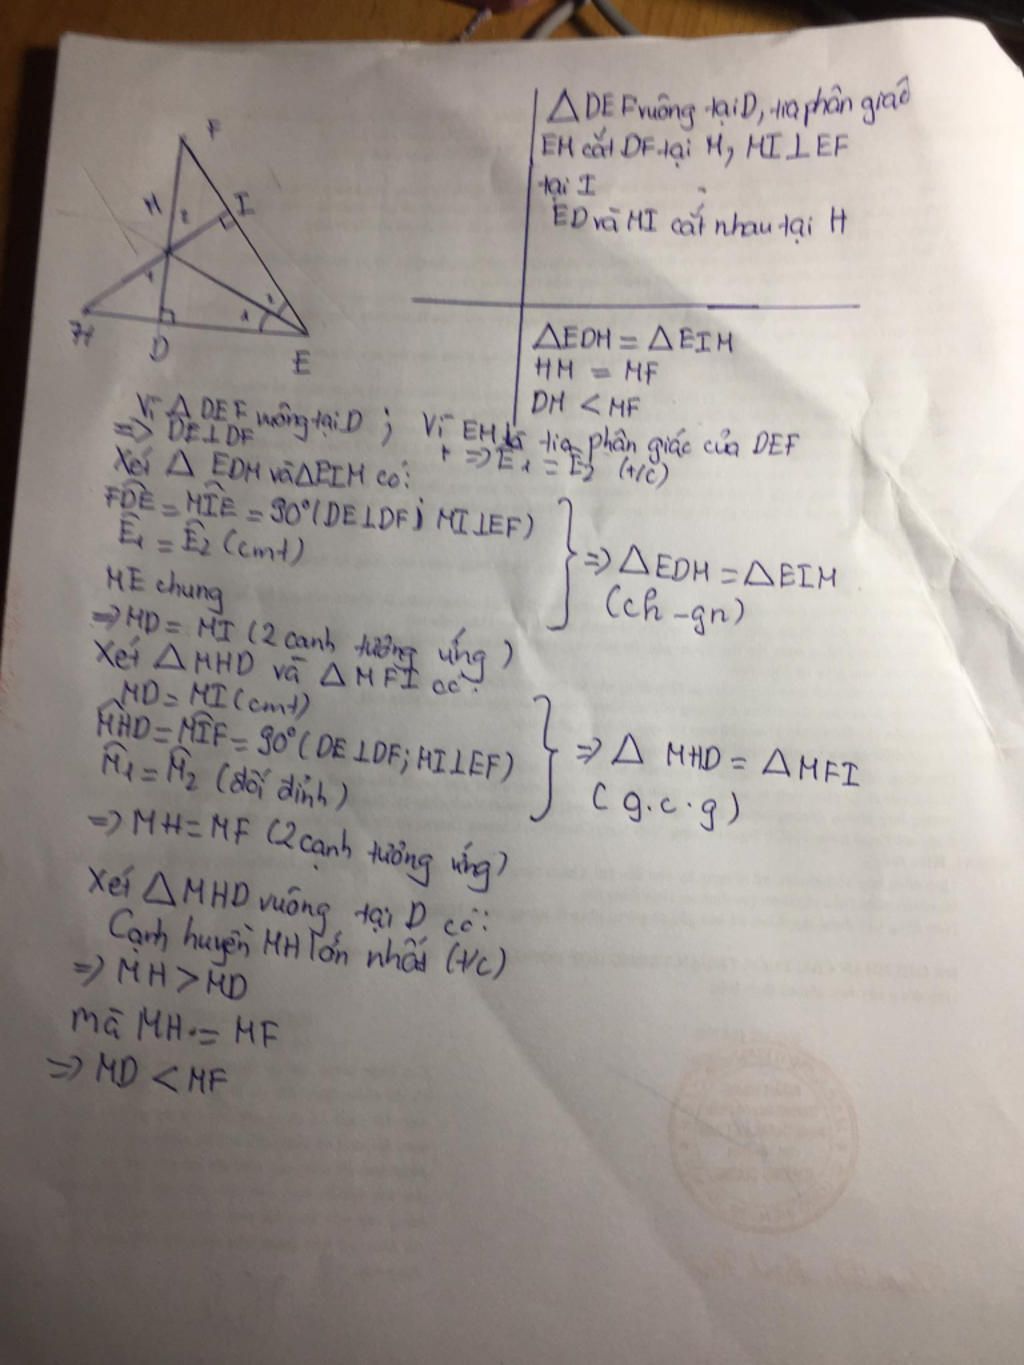 F
M
2
I
1
H
D
1
2
E
△ DEF vuông tại D, tia phân giác
EM cắt DF tại M, MI⊥EF
tại I
ED và MI cắt nhau tại H
△EDM = △EIM
HM = MF
DM < MF
Vì △ DEF vuông tại D ; Vì EM là tia phân giác của DEF
=> DE⊥DF => Ê1 = Ê2 (t/c)
Xét △ EDM và △EIM có:
FD̂E = MÎE = 90° (DE⊥DF; MI⊥EF)
Ê1 = Ê2 (cmt)
ME chung
=> △EDM = △EIM
(ch - gn)
=> MD = MI (2 cạnh tương ứng)
Xét △MHD và △MFI có:
MD = MI (cmt)
M̂HD = MÎF = 90° (DE⊥DF; MI⊥EF)
M̂1 = M̂2 (đối đỉnh)
=> △ MHD = △MFI
(g.c.g)
=> MH = MF (2 cạnh tương ứng)
Xét △MHD vuông tại D có:
Cạnh huyền MH lớn nhất (t/c)
=> MH > MD
mà MH = MF
=> MD < MF